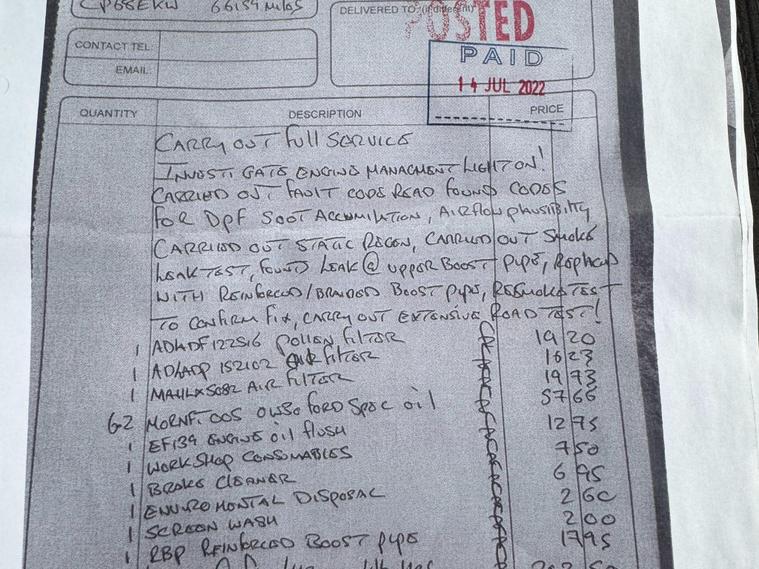 CP68EKW 66154 miles
DELIVERED TO: (if different)
POSTED
PAID
14 JUL 2022
CONTACT TEL:
EMAIL:
QUANTITY DESCRIPTION PRICE
CARRY OUT FULL SERVICE
INVESTIGATE ENGINE MANAGMENT LIGHT ON!
CARRIED OUT FAULT CODE READ FOUND CODES
FOR DPF SOOT ACCUMILATION, AIRFLOW PLAUSIBILITY
CARRIED OUT STATIC REGEN, CARRIED OUT SMOKE
LEAK TEST, FOUND LEAK @ UPPER BOOST PIPE, REPLACED
WITH REINFORCED/BRAIDED BOOST PIPE, RESMOKE TEST
TO CONFIRM FIX, CARRY OUT EXTENSIVE ROAD TEST!
1 ADADF122516 POLLEN FILTER 19 20
1 ADADP152102 FILTER 16 23
1 MAHLX5082 AIR FILTER 19 73
6.2 MORNF.005 0W30 FORD SPEC OIL 57 66
1 EF134 ENGINE OIL FLUSH 12 75
1 WORKSHOP CONSUMABLES 7 50
1 BRAKE CLEANER 6 95
1 ENVIROMONTAL DISPOSAL 2 60
1 SCREEN WASH 2 00
1 RBP REINFORCED BOOST PIPE 17 95